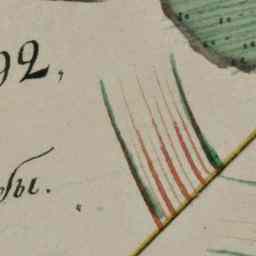 92,
бы.